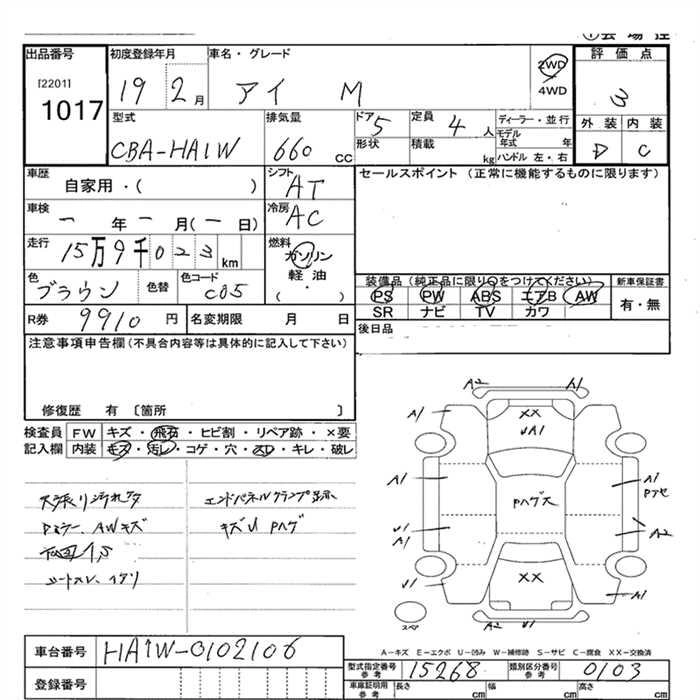 ①会 場 控
出品番号
[2201]
1017
初度登録年月
19 2月
車名・グレード
アイ M
2WD
4WD
評 価 点
3
外 装 内 装
D C
型式
CBA-HA1W
排気量
660 CC
ドア 5
形状
定員 4 人
積載 kg
ディーラー・並行
モデル
年式 年
ハンドル 左・右
車歴
自家用・( )
シフト
AT
車検
一 年 一 月(一 日)
冷房
AC
走行
15万9千023km
燃料
ガソリン
軽 油
( )
色
ブラウン
色替
色コード
C05
R券 9910 円
名変期限 月 日
セールスポイント (正常に機能するものに限ります)
装備品 (純正品に限り○をつけてください)
PS PW ABS エアB AW
SR ナビ TV カワ
新車保証書
有・無
後日品
注意事項申告欄(不具合内容等は具体的に記入して下さい)
修復歴 有 〔箇所 〕
検査員
記入欄
FW キズ・飛石・ヒビ割・リペア跡・×要
内装 キズ・汚レ・コゲ・穴・スレ・キレ・破レ
AWキズ
エンドパネルクランプ跡
キズU Pハゲ
A2 A1
XX
UA1
A1
A1
Pハゲ大
U1
A1
A2
XX
U1
A1
A2 U1
A-キズ E-エクボ U-凹み W-補修跡 S-サビ C-腐食 XX-交換済
車台番号 HA1W-0102106
登録番号
型式指定番号
参考
15268
類別区分番号
参考
0103
車庫証明用
参考
長さ cm 幅 cm 高さ cm